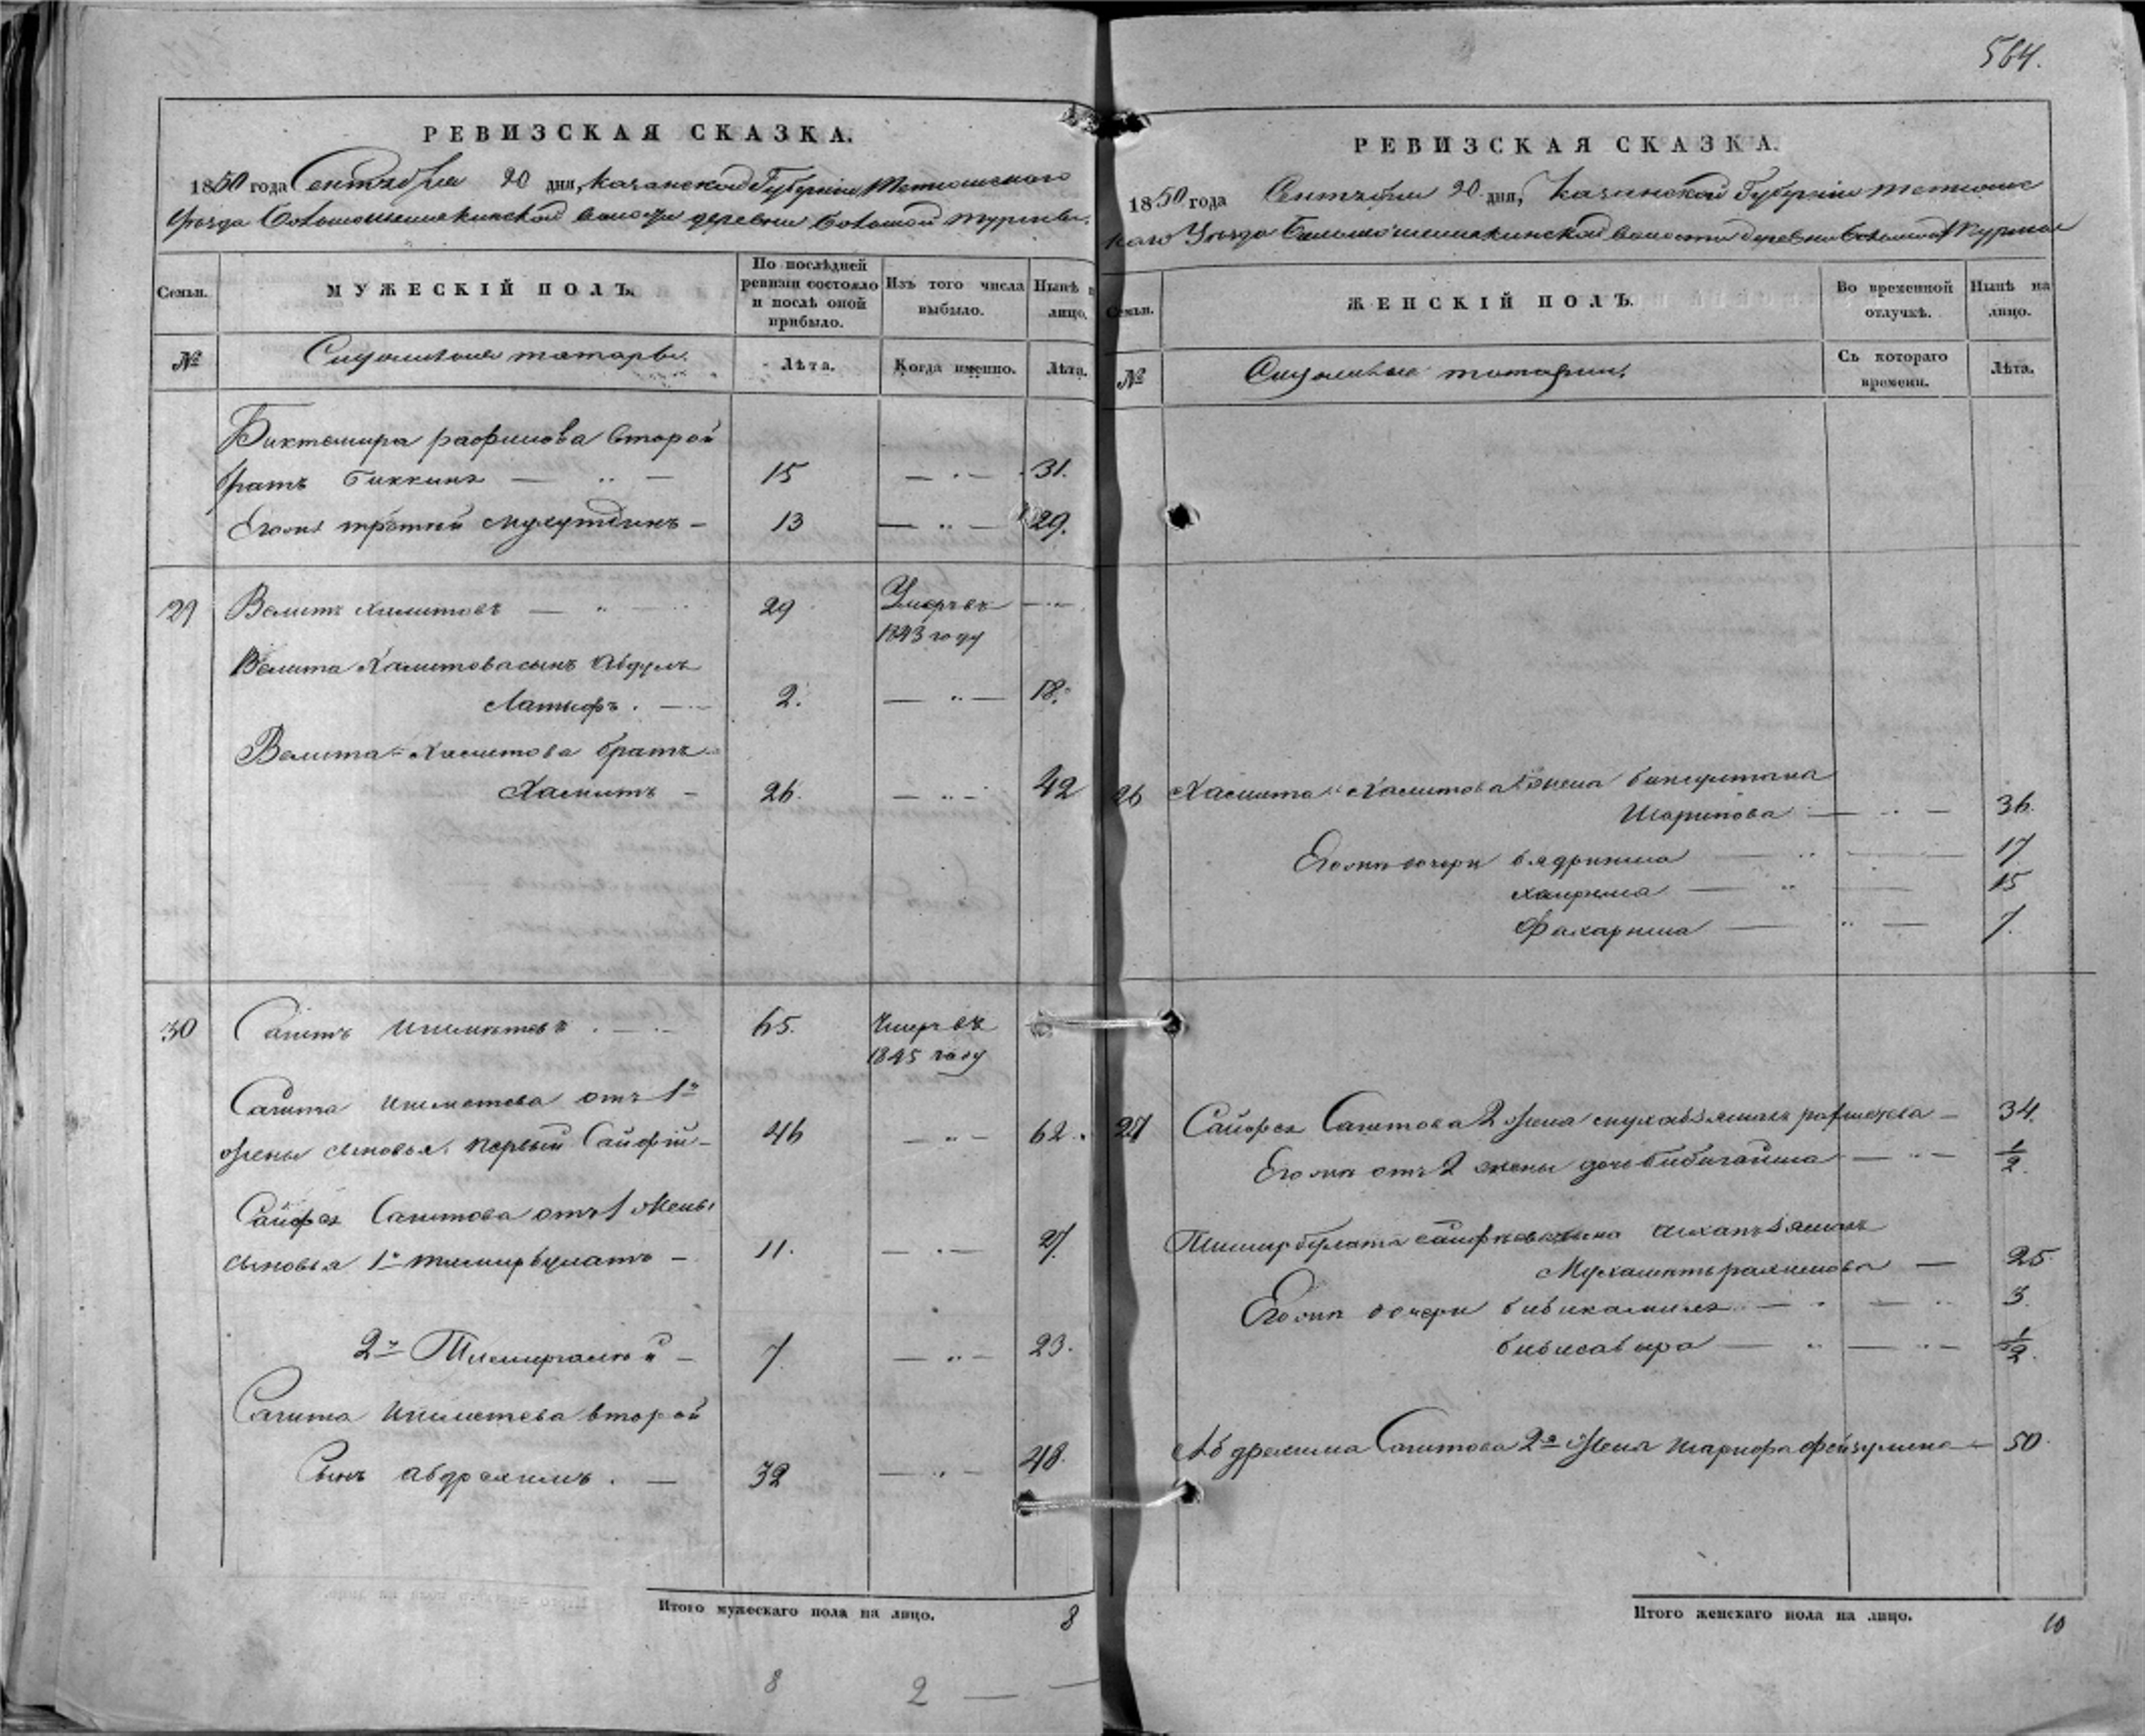 564.
РЕВИЗСКАЯ СКАЗКА.
1850 года Сентября 20 дня, Казанской Губерніи Тетюшскаго
Уѣзда волости деревни Большой
Семьи. МУЖЕСКІЙ ПОЛЪ. По послѣдней ревизіи состояло и послѣ оной прибыло. Изъ того числа выбыло. Нынѣ на лицо.
№ Служилые татары. Лѣта. Когда именно. Лѣта.
Биктемира Рафикова второй
братъ Биккинъ — „ — 15 — „ — 31.
Его же третій Мухутдинъ — 13 — „ — 29.
29 Велитъ Хамитовъ — „ — 29 Умеръ въ — „ —
1843 году
Велита Хамитова сынъ Абдулъ
Латыфъ. — 2. — „ — 18.
Велита Хамитова братъ
Хамитъ — 26. — „ — 42
30 Сагитъ Ишметевъ. — 65. Умеръ въ
1845 году
Сагита Ишметева отъ 1й
жены сыновья, первый Сайфій — 46 — „ — 62.
Сайфея Сагитова отъ 1 жены
сыновья 1й Тимирбулатъ — 11. — „ — 27.
2й Тимиргалей — 7. — „ — 23.
Сагита Ишметева второй
сынъ Абдрахимъ. — 32 — „ — 48.
Итого мужескаго пола на лицо. 8
8 2 —
РЕВИЗСКАЯ СКАЗКА.
1850 года Сентября 20 дня, Казанской Губерніи Тетюшс
каго Уѣзда волости деревни Большой
Семьи. ЖЕНСКІЙ ПОЛЪ. Во временной отлучкѣ. Нынѣ на лицо.
№ Служилые татарки. Съ котораго времени. Лѣта.
26 Хамита Хамитова жена
Шарипова — „ — 36.
Его же дочери Бядриниса — „ — 17
— „ — 15
Фахарниса — „ — 7.
27 Сайфея Сагитова 2 жена — 34.
Его же отъ 2 жены дочь Бибигайша — „ — 1/2.
Тимирбулата жена
— 25.
Его же дочери Бибикамиля — „ — 3.
Бибисабира — „ — 1/2.
Абдрахима Сагитова 2я жена Шарифа Фейзулина — 50.
Итого женскаго пола на лицо. 10